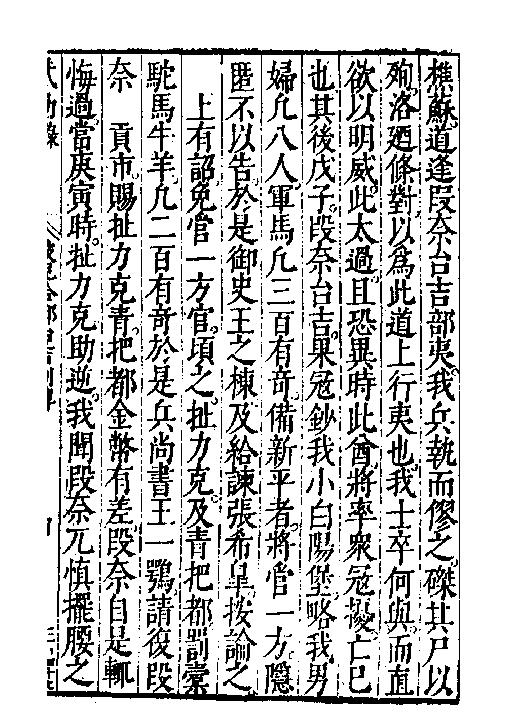 樵蘇道逢叚奈台吉部夷我兵執而僇之磔其尸以
殉洛廼條對以爲此道上行夷也我士卒何與而直
欲以明威此太過且恐異時此酋將率衆寇擾亡已
也其後戊子叚奈台吉果寇鈔我小白陽堡略我男
婦凢八人軍馬凢三百有奇備新平者將官一方隱
匿不以告於是御史王之棟及給諫張希皐按論之
上有詔免官一方官頃之扯力克及青把都罰橐
駝馬牛羊凢二百有奇於是兵尚書王一鶚請復叚
奈 貢市賜扯力克青把都金幣有差叚奈自是輒
悔過當庚寅時扯力克助逆我聞叚奈兀慎擺腰之
武功錄